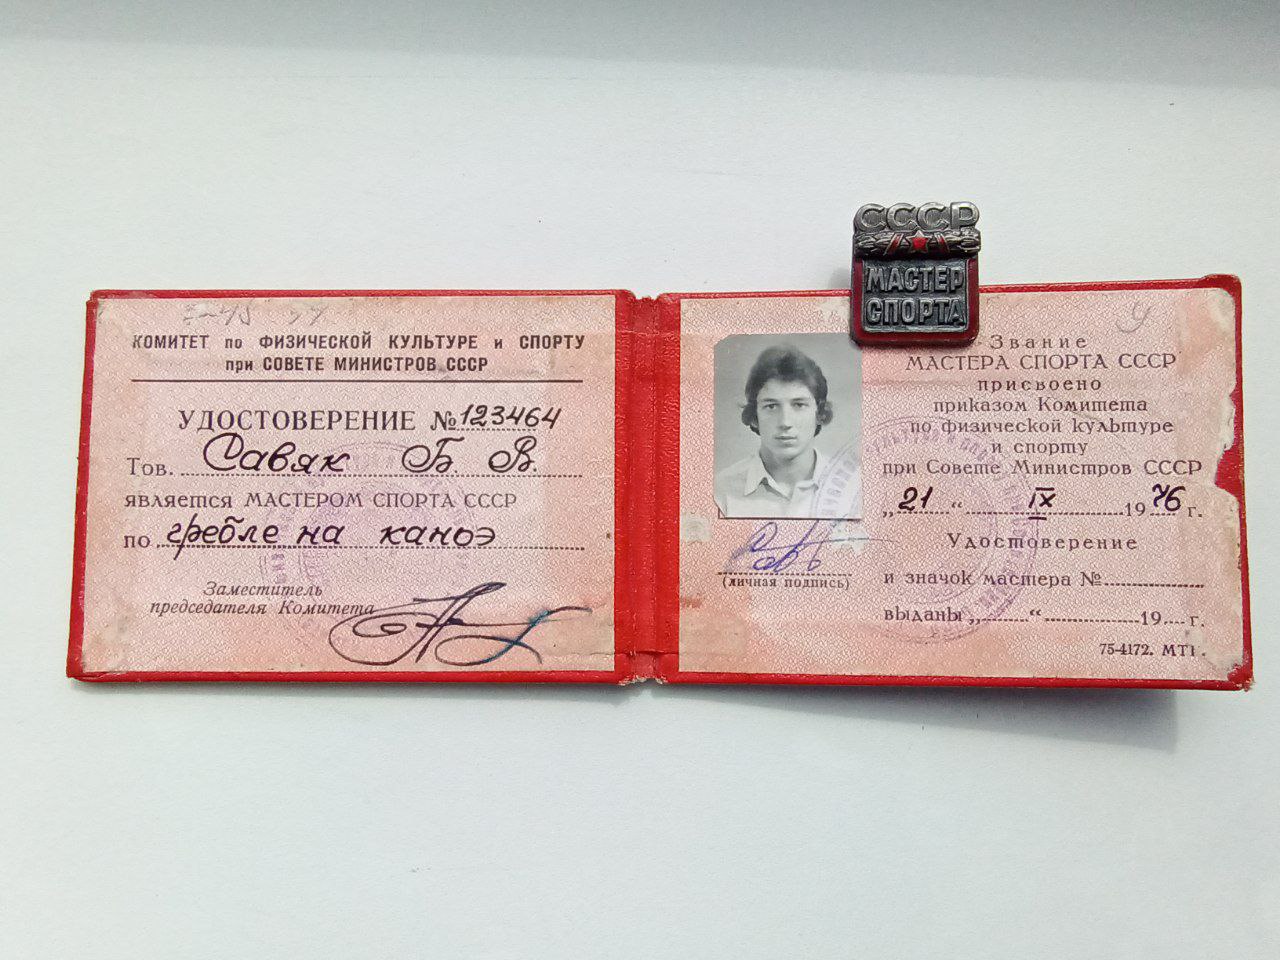 КОМИТЕТ по ФИЗИЧЕСКОЙ КУЛЬТУРЕ и СПОРТУ
при СОВЕТЕ МИНИСТРОВ СССР
УДОСТОВЕРЕНИЕ №123464
Тов. Савяк Б. В.
является МАСТЕРОМ СПОРТА СССР
по гребле на каноэ
Заместитель
председателя Комитета
СССР
МАСТЕР
СПОРТА
Звание
МАСТЕРА СПОРТА СССР
присвоено
приказом Комитета
по физической культуре
и спорту
при Совете Министров СССР
„21“ IX 1976 г.
Удостоверение
и значок мастера №
выданы „ “ 19 г.
(личная подпись)
75-4172. МТГ.